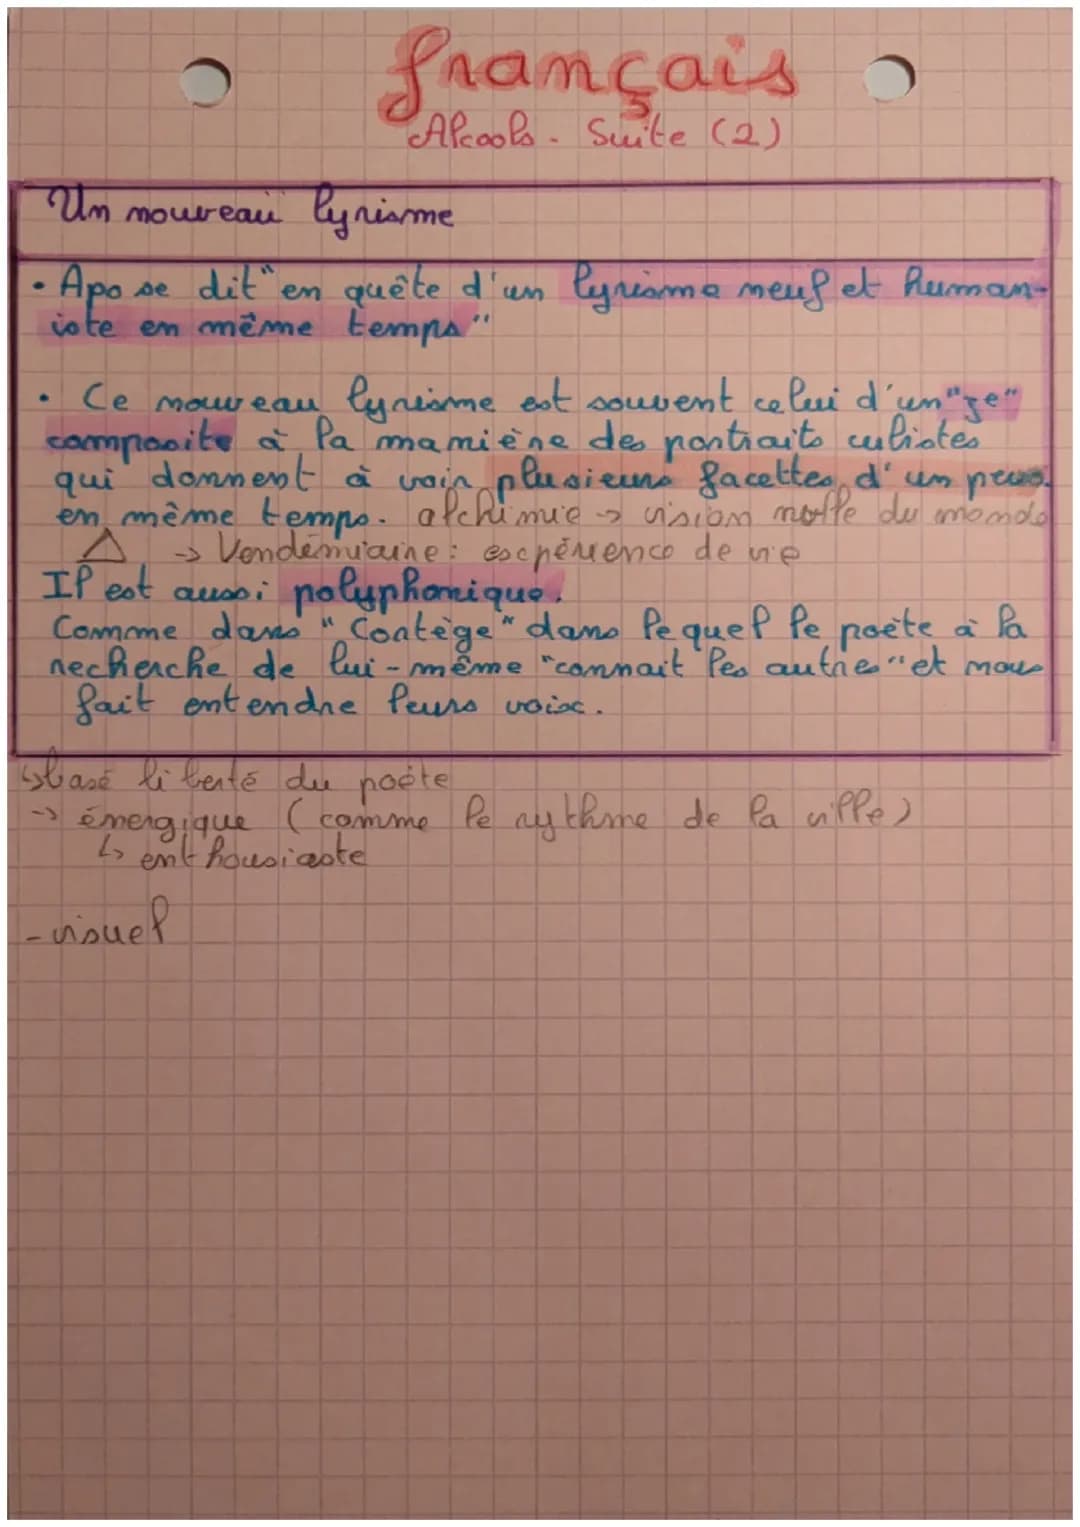 français
Alcools - Suite (2)
Un nouveau lyrisme
• Apo se dit "en quête d'un lyrisme neuf et human-
iste en même temps"
• Ce nouveau lyrisme est souvent celui d'un "je"
composite à la manière des portraits cubistes
qui donnent à voir plusieurs facettes d'un perso.
en même temps. alchimie -> vision du monde
△ -> Vendémiaire : expérience de vie
Il est aussi polyphonique.
Comme dans "Cortège" dans lequel le poète à la
recherche de lui-même "connait les autres" et nous
fait entendre leurs voix.
↳ basé liberté du poète
-> énergique (comme le rythme de la ville)
↳ enthousiaste
- visuel